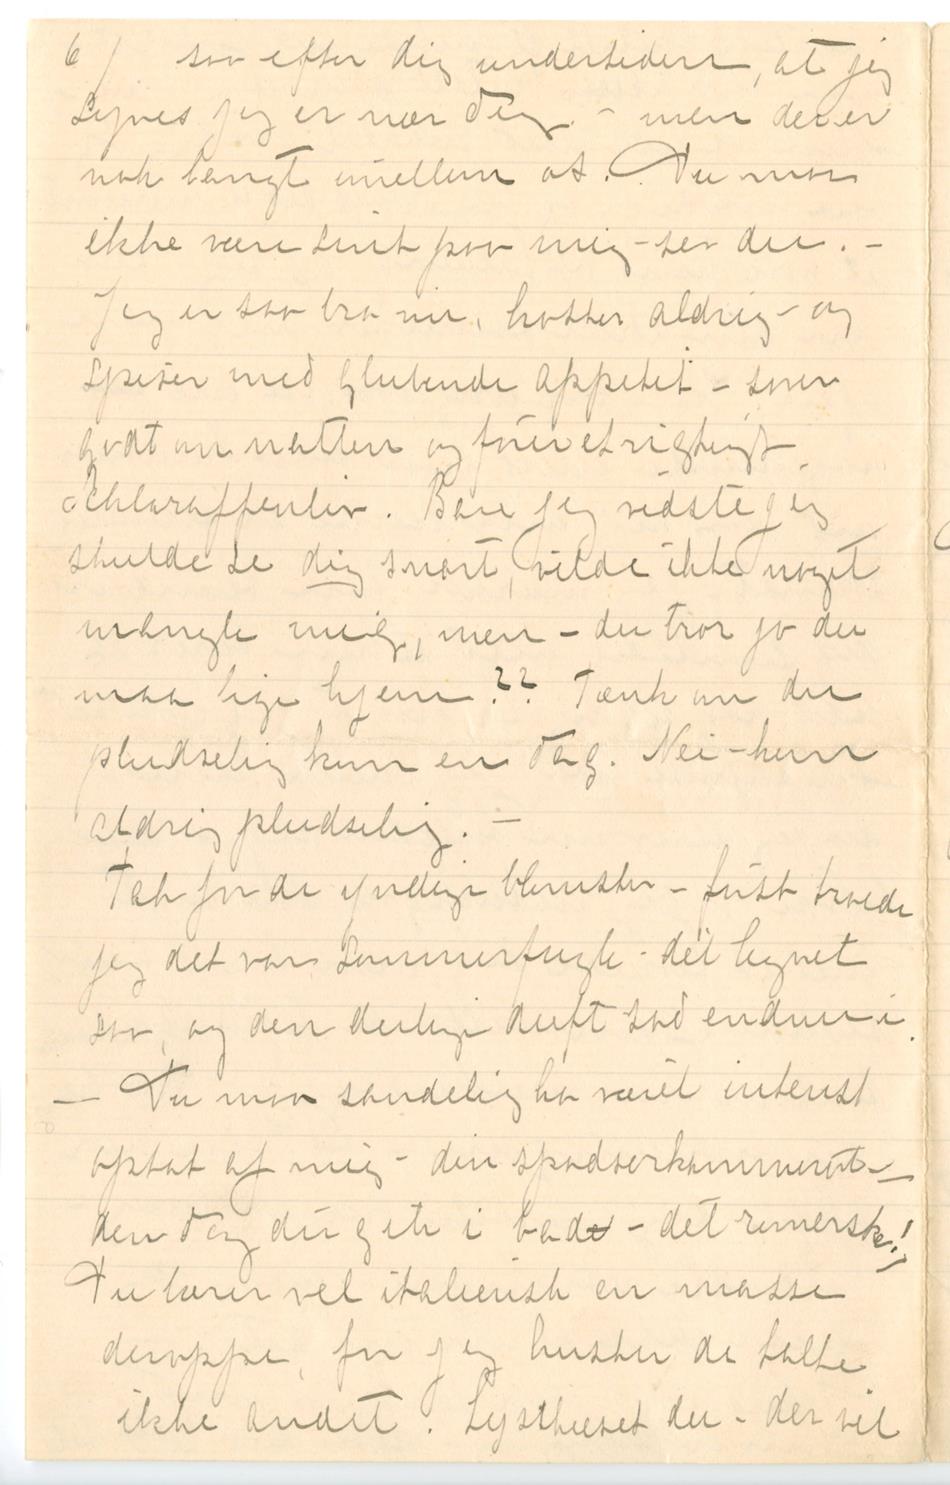 6/ saa efter dig undertiden, at jeg
synes jeg er nær dig. – men der er
nok langt imellem os. Du maa
ikke være sint paa mig – ser du. –
Jeg er saa bra nu, hoster aldrig – og
spiser med glubende appetit – sover
godt om natten og fører et rigtigt
Schlaraffenliv. Bare jeg vidste jeg
skulde se dig snart, vilde ikke noget
mangle mig, men – du tror jo du
maa lige hjem?? Tænk om du
pludselig kom en dag. Nei – kom
aldrig pludselig. –
Tak for de yndige blomster – først troede
jeg det var sommerfugle – det lignet
saa, og den deilige duft sad endnu i.
– Du maa sandelig ha været intenst
optat af mig – din spadserkammerat –
den dag du gik i bad – det romerske!
Du lærer vel italiensk en masse
deroppe, for jeg husker de talte
ikke andet. Lysthuset du – der vil